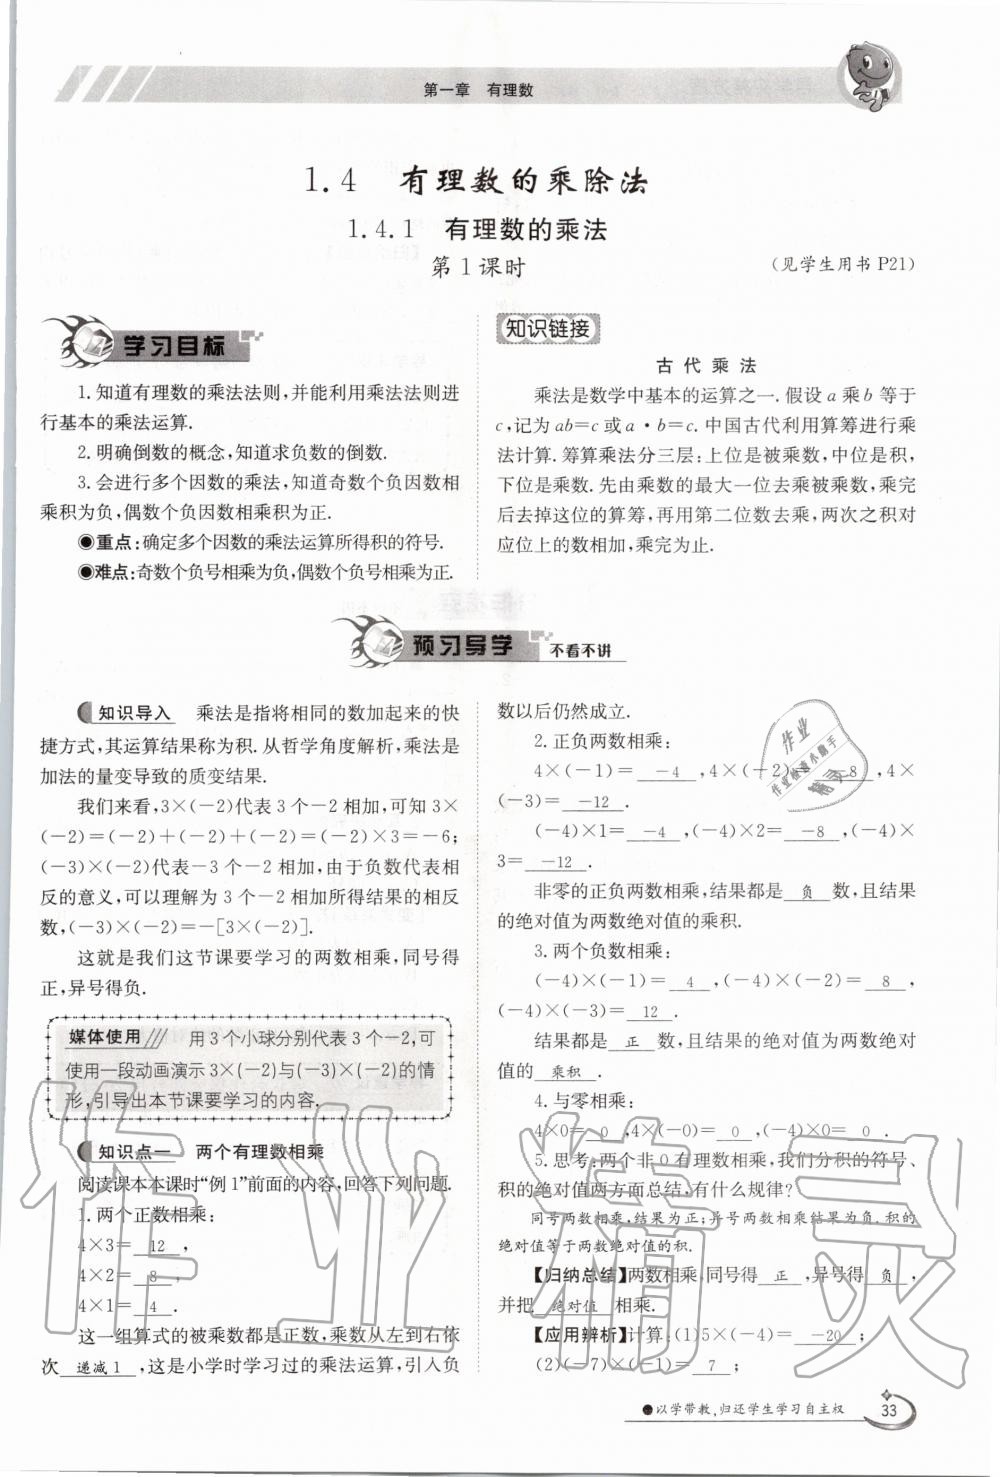 第一章　有理数
1.4　有理数的乘除法
1.4.1　有理数的乘法
第1课时
(见学生用书 P21)
学习目标
1.知道有理数的乘法法则,并能利用乘法法则进
行基本的乘法运算.
2.明确倒数的概念,知道求负数的倒数.
3.会进行多个因数的乘法,知道奇数个负因数相
乘积为负,偶数个负因数相乘积为正.
●重点:确定多个因数的乘法运算所得积的符号.
●难点:奇数个负号相乘为负,偶数个负号相乘为正.
知识链接
古代乘法
乘法是数学中基本的运算之一.假设 a 乘 b 等于
c,记为 ab=c 或 a·b=c.中国古代利用算筹进行乘
法计算.筹算乘法分三层:上位是被乘数,中位是积,
下位是乘数.先由乘数的最大一位去乘被乘数,乘完
后去掉这位的算筹,再用第二位数去乘,两次之积对
应位上的数相加,乘完为止.
预习导学　不看不讲
知识导入　乘法是指将相同的数加起来的快
捷方式,其运算结果称为积.从哲学角度解析,乘法是
加法的量变导致的质变结果.
我们来看,3×(-2)代表 3 个-2 相加,可知 3×
(-2)=(-2)+(-2)+(-2)=(-2)×3=-6;
(-3)×(-2)代表-3 个-2 相加,由于负数代表相
反的意义,可以理解为 3 个-2 相加所得结果的相反
数,(-3)×(-2)=-[3×(-2)].
这就是我们这节课要学习的两数相乘,同号得
正,异号得负.
媒体使用　用 3 个小球分别代表 3 个-2,可
使用一段动画演示 3×(-2)与(-3)×(-2)的情
形,引导出本节课要学习的内容.
知识点一　两个有理数相乘
阅读课本本课时“例 1”前面的内容,回答下列问题.
1.两个正数相乘:
4×3= 12 ,
4×2= 8 ,
4×1= 4 .
这一组算式的被乘数都是正数,乘数从左到右依
次 递减 1 ,这是小学时学习过的乘法运算,引入负
数以后仍然成立.
2.正负两数相乘:
4×(-1)= -4 ,4×(-2)= -8 ,4×
(-3)= -12 .
(-4)×1= -4 ,(-4)×2= -8 ,(-4)×
3= -12 .
非零的正负两数相乘,结果都是 负 数,且结果
的绝对值为两数绝对值的乘积.
3.两个负数相乘:
(-4)×(-1)= 4 ,(-4)×(-2)= 8 ,
(-4)×(-3)= 12 .
结果都是 正 数,且结果的绝对值为两数绝对
值的 乘积 .
4.与零相乘:
4×0= 0 ,4×(-0)= 0 ,(-4)×0= 0 .
5.思考:两个非 0 有理数相乘,我们分积的符号、
积的绝对值两方面总结,有什么规律?
同号两数相乘,结果为正;异号两数相乘结果为负.积的
绝对值等于两数绝对值的积.
【归纳总结】两数相乘,同号得 正 ,异号得 负 ,
并把 绝对值 相乘.
【应用辨析】计算:(1)5×(-4)= -20 ;
(2)(-7)×(-1)= 7 ;
●以学带教,归还学生学习自主权
33
作业精灵